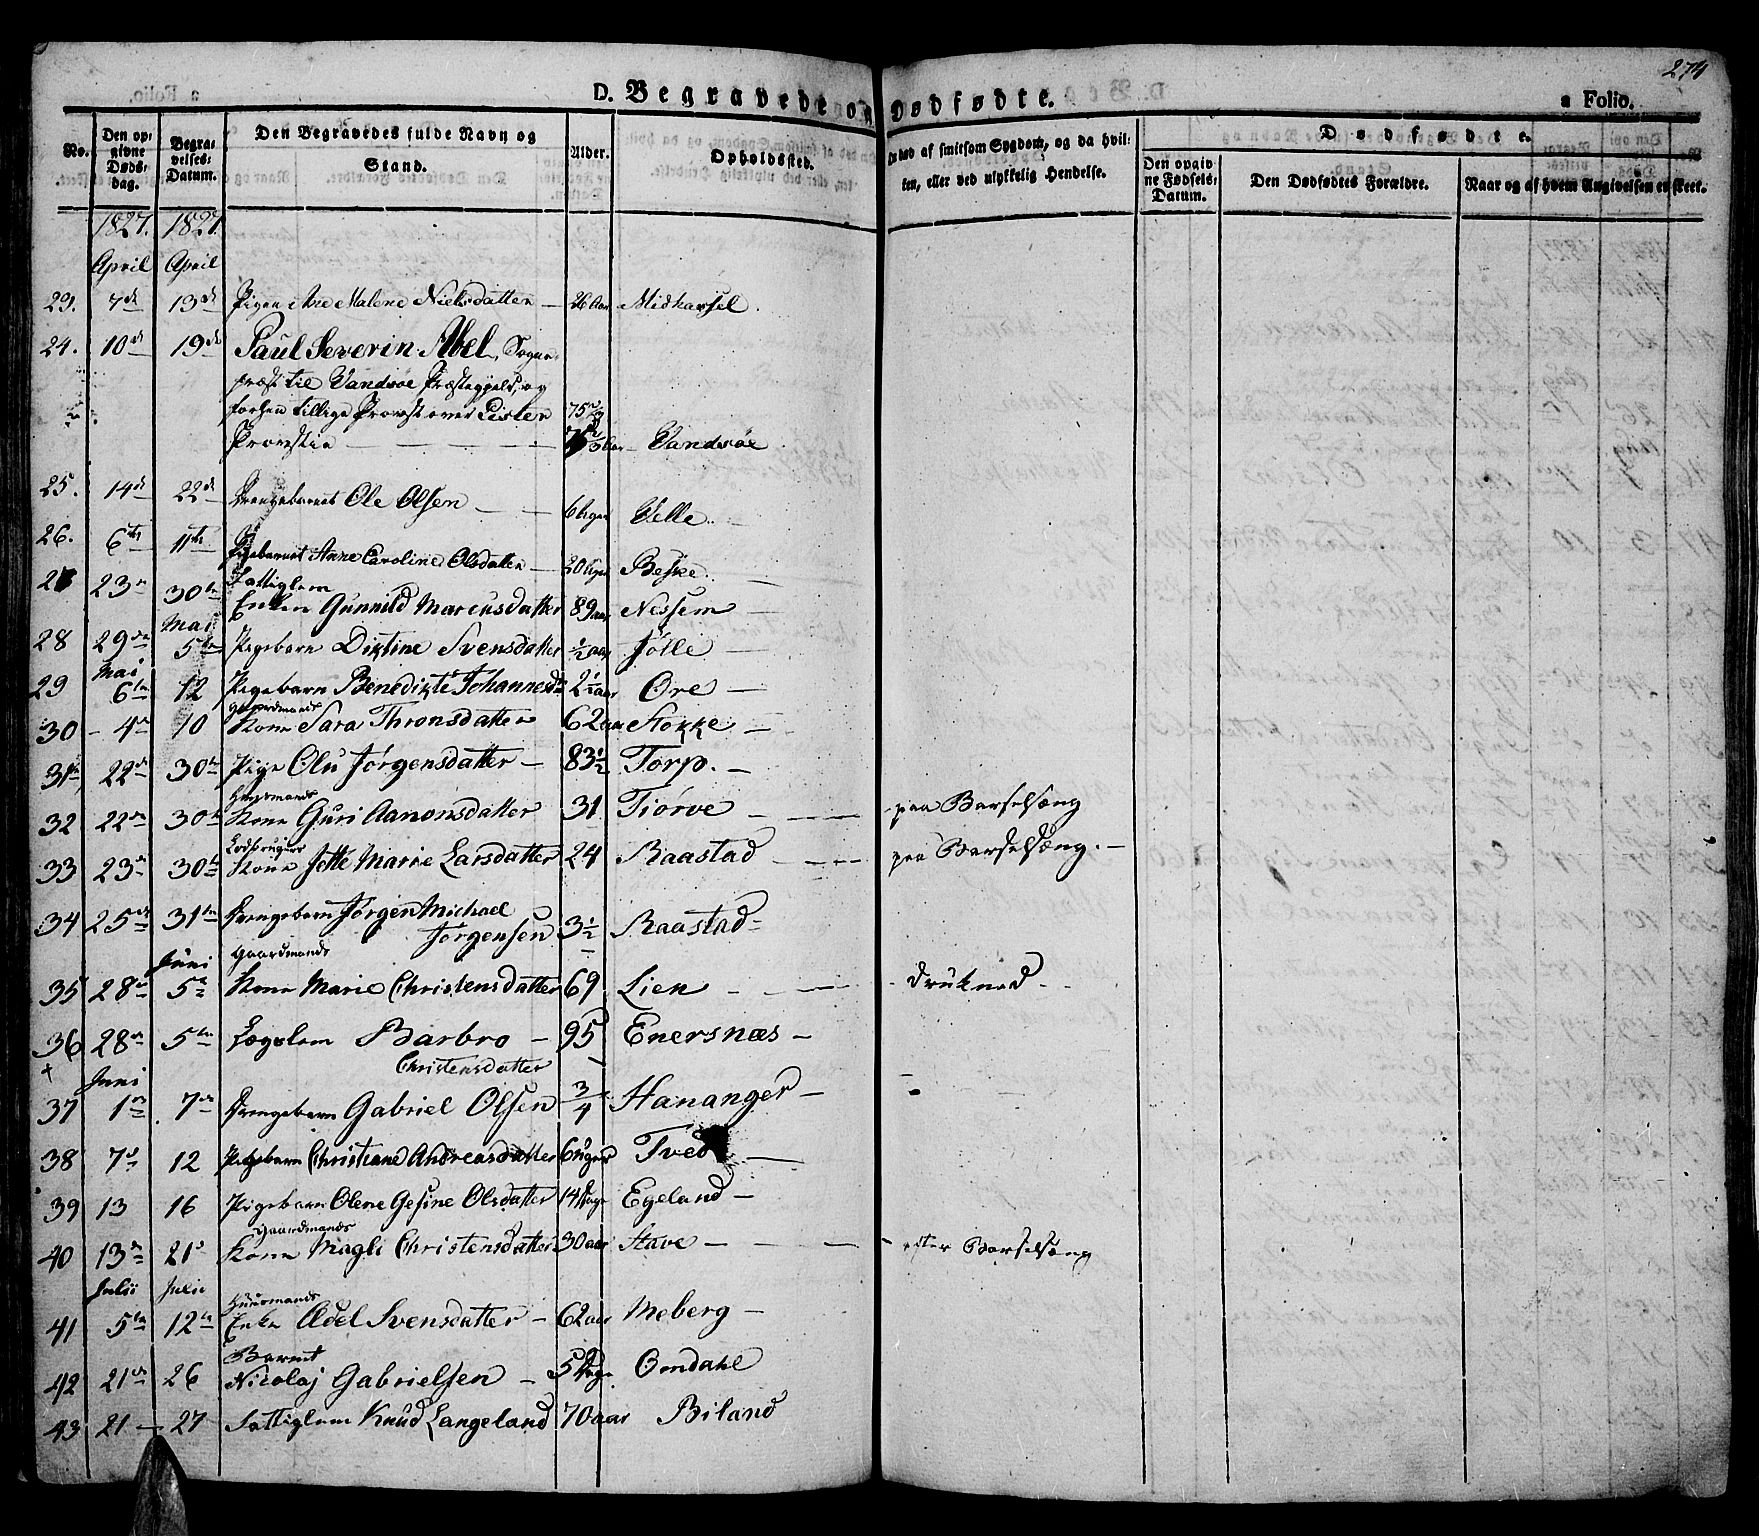 274
D. Begravede og Dødfødte.
a Folio.
No. | Den opgivne Dødsdag. | Begravelses-Datum. | Den Begravedes fulde Navn og Stand. | Alder. | Opholdssted. | Om død af smitsom Sygdom, og da hvilken, eller ved ulykkelig Hendelse.
Dødfødte.
Den opgivne Fødsels-Datum. | Den Dødfødtes Forældre. | Naar og af hvem Angivelsen er skeet.
1827. 1827.
April April
23. 7de 13de Pigen Ane Malene Nielsdatter — 26 Aar Midhassel.
24. 10de 19de Paul Severin Abel, Sogne-
præst til Vandsøe Præstegjeld, og
forhen tillige Provst over Lister
Provstie — Aar — Vandsøe
25. 14de 22de Drengebarnet Ole Olsen — 6 Uger Velle.
26. 6te 11te Pigebarnet Anne Caroline Olsdatter — 20 Uger Beske.
27 23de 30te Fattiglem
Enken Gunnild Marcusdatter 89 aar Nessem —
Mai
28 29de 5te Pigebarn Diktine Svensdatter 1/2 aar Jølle —
Mai
29 6te 12 Pigebarn Benedikte Johannesdtr 2 1/2 aar Ore —
Gaardmands
30 — 4de 10 Kone Sara Thronsdatter 62 aar Stokke —
31 22de 30te Pige Olu Jørgensdatter — 83 1/2 Torp. —
Huusmands
32 22de 30te Kone Guri Aanonsdatter 31 Tiørve — paa Barselsæng
33 23de 30te Kone Jette Marie Larsdatter 24 Raastad — paa Barselsæng. —
34 25de 31te Drengebarn Jørgen Michael
Jørgensen 3 1/2 Raastad —
Juni Gaardmands
35 28de 5te Kone Marie Christensdatter 69 Lien — drukned —
36 28de 5te Lægslem Barbro — 95 Enersnæs —
Christensdatter
Juni
37 1te 7de Drengebarn Gabriel Olsen 3/4 Hananger —
38 7de 12 Pigebarn Christiane Andreasdatter 6 Uger Tved —
39 13 16 Pigebarn Olene Gesine Olsdatter 14 Dage Egeland —
Gaardmands
40 13de 21de Kone Magli Christensdatter 30 aar Stave — efter Barselsæng
Julii Julii
Huusmands
41 5te 12te Enke Adel Svensdatter — 62 aar Meberg —
Barnet
42 21de 26 Nicolaj Gabrielsen — 5 Dage Omdahl
43 21 — 27 Fattiglem Knud Langeland 70 aar Biland